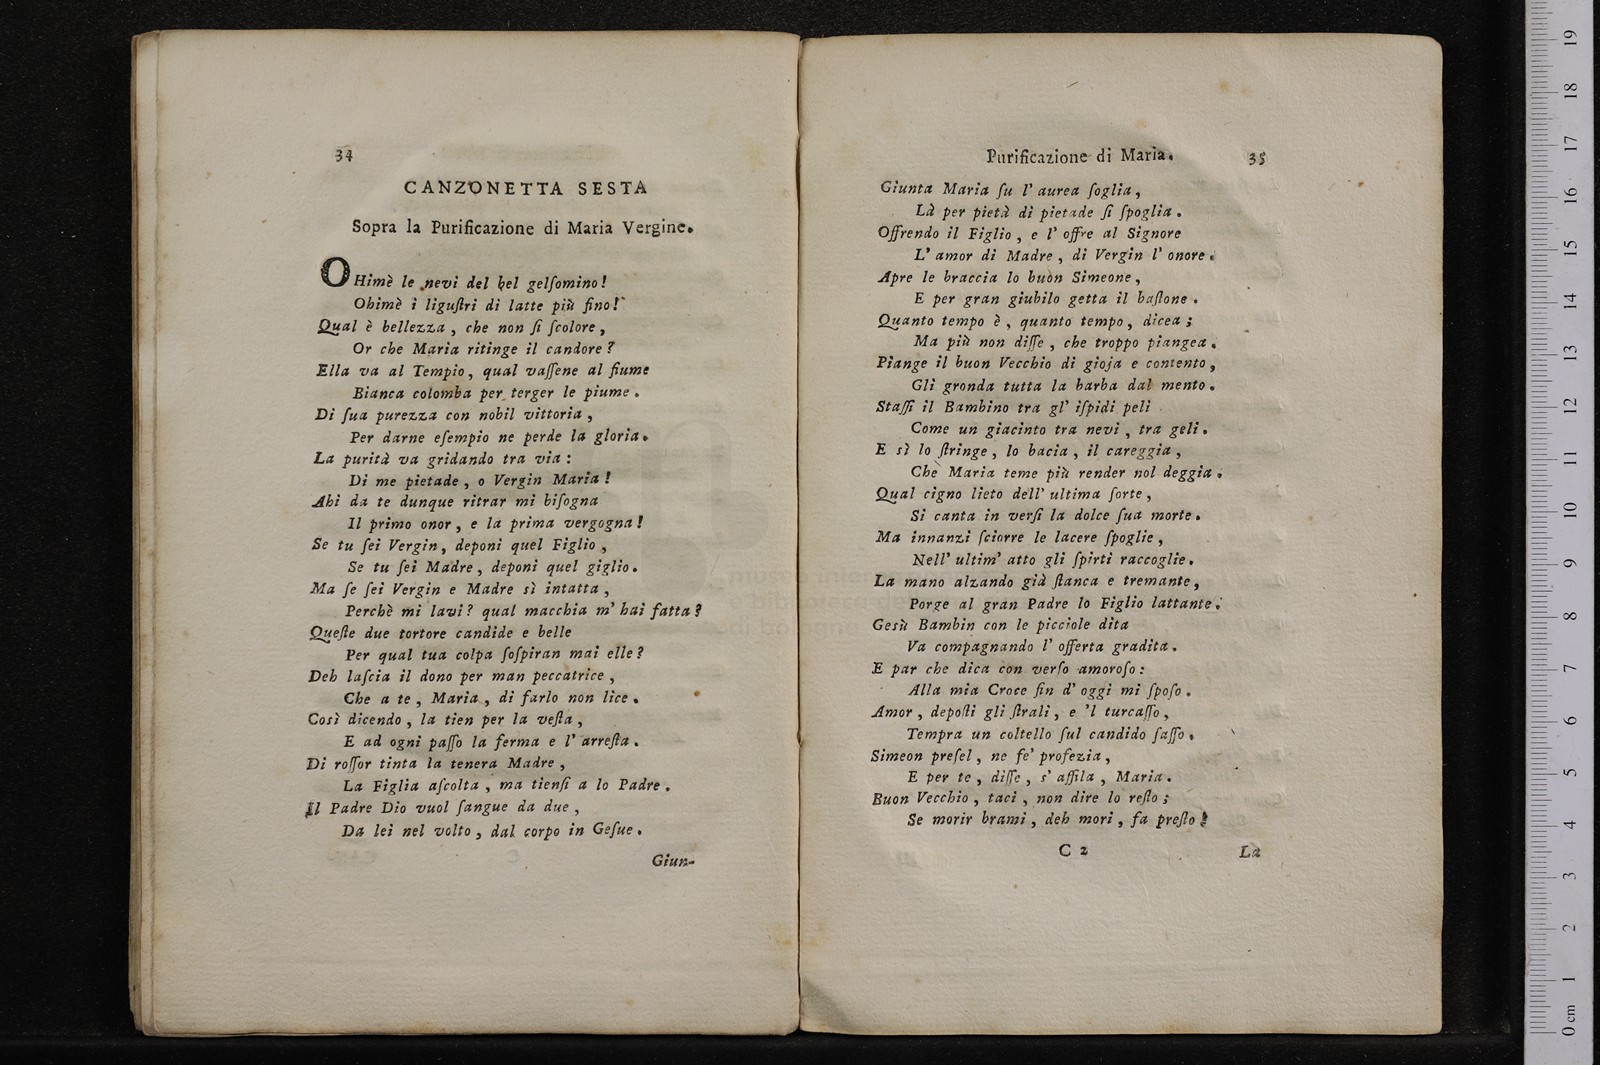 34
CANZONETTA SESTA
Sopra la Purificazione di Maria Vergine.
OHimè le nevi del bel gelſomino!
Ohimè i liguſtri di latte più fino!
Qual è bellezza, che non ſi ſcolore,
Or che Maria ritinge il candore?
Ella va al Tempio, qual vaſſene al fiume
Bianca colomba per terger le piume.
Di ſua purezza con nobil vittoria,
Per darne eſempio ne perde la gloria.
La purità va gridando tra via:
Di me pietade, o Vergin Maria!
Ahi da te dunque ritrar mi biſogna
Il primo onor, e la prima vergogna!
Se tu ſei Vergin, deponi quel Figlio,
Se tu ſei Madre, deponi quel giglio.
Ma ſe ſei Vergin e Madre sì intatta,
Perchè mi lavi? qual macchia m' hai fatta?
Queſte due tortore candide e belle
Per qual tua colpa ſoſpiran mai elle?
Deh laſcia il dono per man peccatrice,
Che a te, Maria, di farlo non lice.
Così dicendo, la tien per la veſta,
E ad ogni paſſo la ferma e l' arreſta.
Di roſſor tinta la tenera Madre,
La Figlia aſcolta, ma tienſi a lo Padre.
Il Padre Dio vuol ſangue da due,
Da lei nel volto, dal corpo in Geſue.
Giun-
Purificazione di Maria. 35
Giunta Maria ſu l' aurea ſoglia,
Là per pietà di pietade ſi ſpoglia.
Offrendo il Figlio, e l' offre al Signore
L' amor di Madre, di Vergin l' onore.
Apre le braccia lo buon Simeone,
E per gran giubilo getta il baſtone.
Quanto tempo è, quanto tempo, dicea;
Ma più non diſſe, che troppo piangea.
Piange il buon Vecchio di gioja e contento,
Gli gronda tutta la barba dal mento.
Staſſi il Bambino tra gl' iſpidi peli
Come un giacinto tra nevi, tra geli.
E sì lo ſtringe, lo bacia, il careggia,
Che Maria teme più render nol deggia.
Qual cigno lieto dell' ultima ſorte,
Si canta in verſi la dolce ſua morte.
Ma innanzi ſciorre le lacere ſpoglie,
Nell' ultim' atto gli ſpirti raccoglie.
La mano alzando già ſtanca e tremante,
Porge al gran Padre lo Figlio lattante.
Gesù Bambin con le picciole dita
Va compagnando l' offerta gradita.
E par che dica con verſo amoroſo:
Alla mia Croce fin d' oggi mi ſpoſo.
Amor, depoſti gli ſtrali, e 'l turcaſſo,
Tempra un coltello ſul candido ſaſſo.
Simeon preſel, ne fe' profezia,
E per te, diſſe, s' affila, Maria.
Buon Vecchio, taci, non dire lo reſto;
Se morir brami, deh mori, fa preſto!
C 2 La